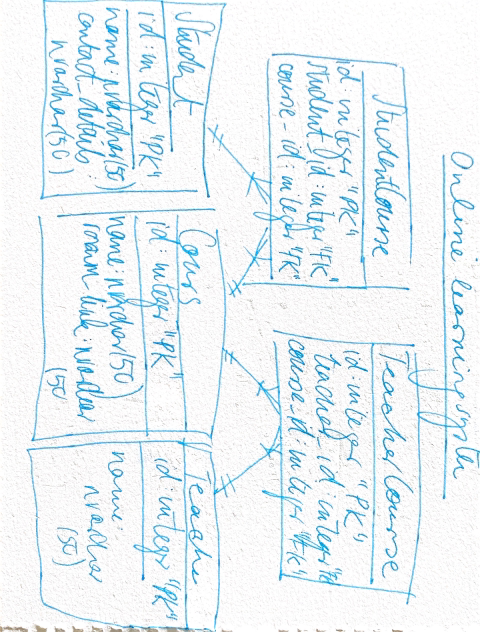 Online learning system
StudentCourse
id: integer "PK"
student_id: integer "FK"
course_id: integer "FK"
TeacherCourse
id: integer "PK"
teacher_id: integer "FK"
course_id: integer "FK"
Student
id: integer "PK"
name: nvarchar(50)
contact_details:
nvarchar(50)
Cours
id: integer "PK"
name: nvarchar(50)
room_link: nvarchar
(50)
Teache
id: integer "PK"
name:
nvarchar
(50)